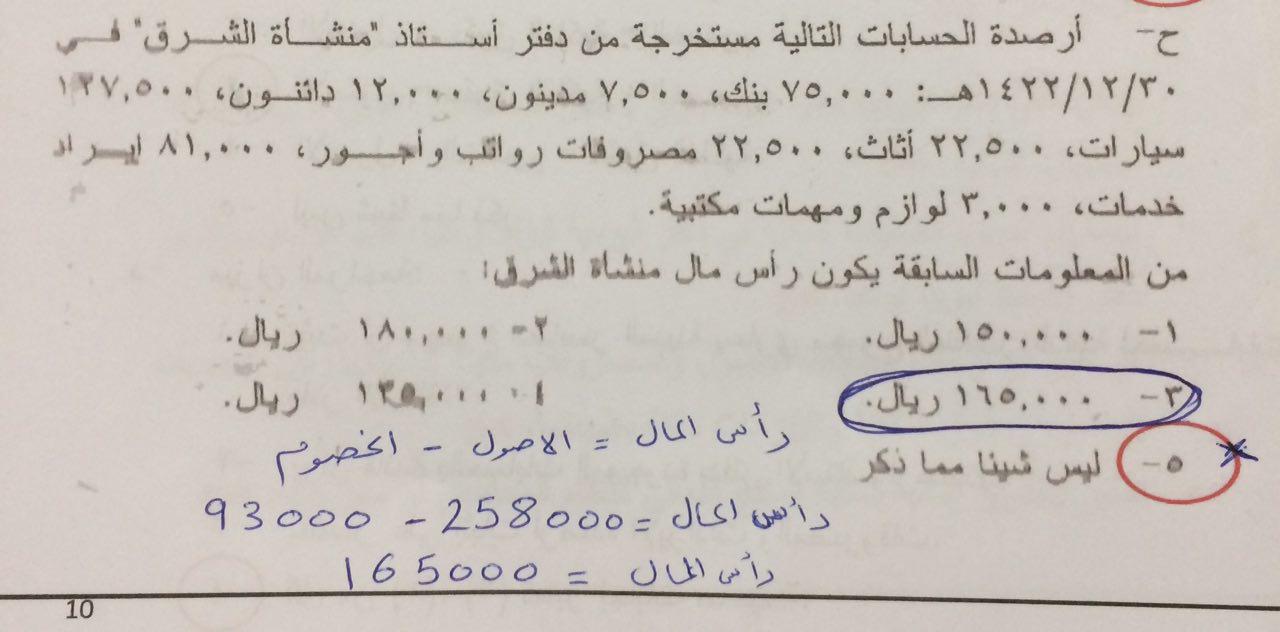 ح- أرصدة الحسابات التالية مستخرجة من دفتر أستاذ "منشأة الشرق" في
١٤٢٢/١٢/٣٠هـ: ٧٥,٠٠٠ بنك، ٧,٥٠٠ مدينون، ١٢,٠٠٠ دائنون، ١٢٧,٥٠٠
سيارات، ٢٢,٥٠٠ أثاث، ٢٢,٥٠٠ مصروفات رواتب وأجور، ٨١,٠٠٠ ايراد
خدمات، ٣,٠٠٠ لوازم ومهمات مكتبية.
من المعلومات السابقة يكون رأس مال منشاة الشرق:
١- ١٥٠,٠٠٠ ريال. ٢- ١٨٠,٠٠٠ ريال.
٣- ١٦٥,٠٠٠ ريال. ٤- ١٣٥,٠٠٠ ريال.
٥- ليس شيئا مما ذكر
رأس المال = الاصول - الخصوم
رأس المال = 258000 - 93000
رأس المال = 165000
10